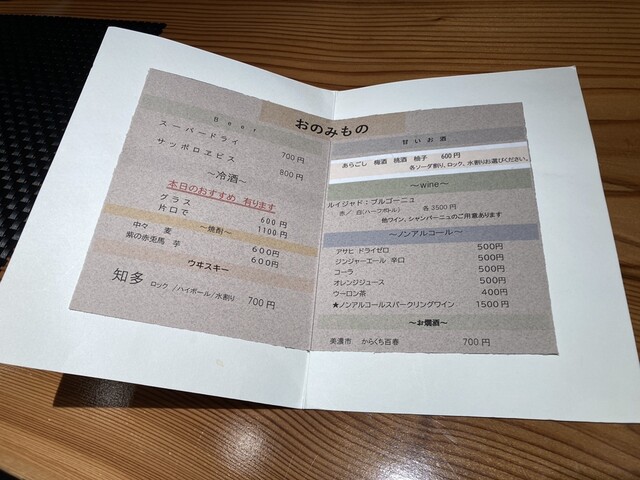 おのみもの
Beer
スーパードライ 700円
サッポロヱビス 800円
～冷酒～
本日のおすすめ 有ります
グラス 600円
片口で 1100円
～焼酎～
中々 麦 600円
紫の赤兎馬 芋 600円
ウヰスキー
知多 ロック /ハイボール/水割り 700円
甘いお酒
あらごし 梅酒 桃酒 柚子 600円
各ソーダ割り、ロック、水割りお選びください。
～wine～
ルイジャド：ブルゴーニュ
赤／ 白(ハーフボトル) 各3500円
他ワイン、シャンパーニュのご用意あります
～ノンアルコール～
アサヒ ドライゼロ 500円
ジンジャーエール 辛口 500円
コーラ 500円
オレンジジュース 500円
ウーロン茶 400円
★ノンアルコールスパークリングワイン 1500円
～お燗酒～
美濃市 からくち百春 700円